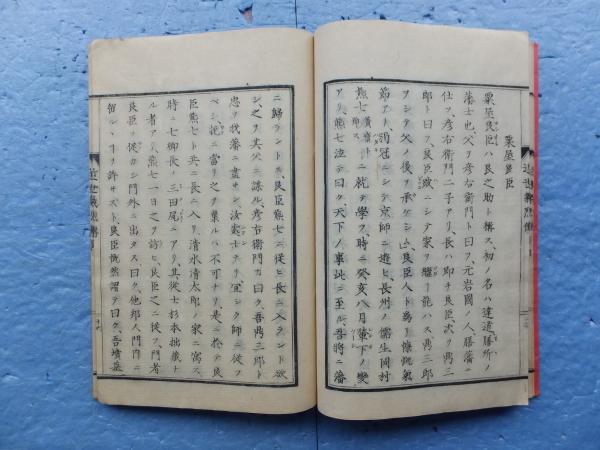 粟屋良臣
粟屋良臣ハ良之助ト称ス、初ノ名ハ達道、膳所ノ
藩士也、父ヲ彦右衛門ト曰フ、元岩國ノ人、膳藩ニ
仕ヲ、彦右衛門二子アリ、長ハ即チ良臣、次ヲ鼎三
郎ト曰フ、良臣歳ニシテ家ヲ
ヲシテ父ノ後ヲ承ケシム、良臣人ト為リ慷慨氣
節アリ、弱冠ニシテ京師ニ遊ヒ、長州ノ儒生岡村
熊七ニ就テ學フ、時ニ癸亥八月輦下ノ變
アリ、熊七泣テ曰ク、天下ノ事此ニ至ル、吾將ニ藩
ニ歸ラントス、良臣熊七ニ從ヒ長ニ入ラント欲
シ、之ヲ其父ニ謀ル、彦右衛門カ曰ク、吾鼎三郎ト
忠ヲ我藩ニ盡サン、汝宜シク師ニ從フ
ベシ、認ニ當リ之ヲ棄ルハ不可ナリ、是ニ於テ良
臣熊七ト共ニ長ニ入リ、清水清太郎ノ家ニ寓ス、
時ニ七卿長ノ三田尻ニアリ、其從士杉本拙藏ナ
ル者アリ、熊七一日之ヲ訪ヒ、良臣之ニ從フ、門者
良臣ヲ從カシ門外ニ出タス曰ク、他邦人門内ニ
留ルヿヲ許サスト、良臣慨然謂テ曰ク、吾墳墓
近世義烈傳